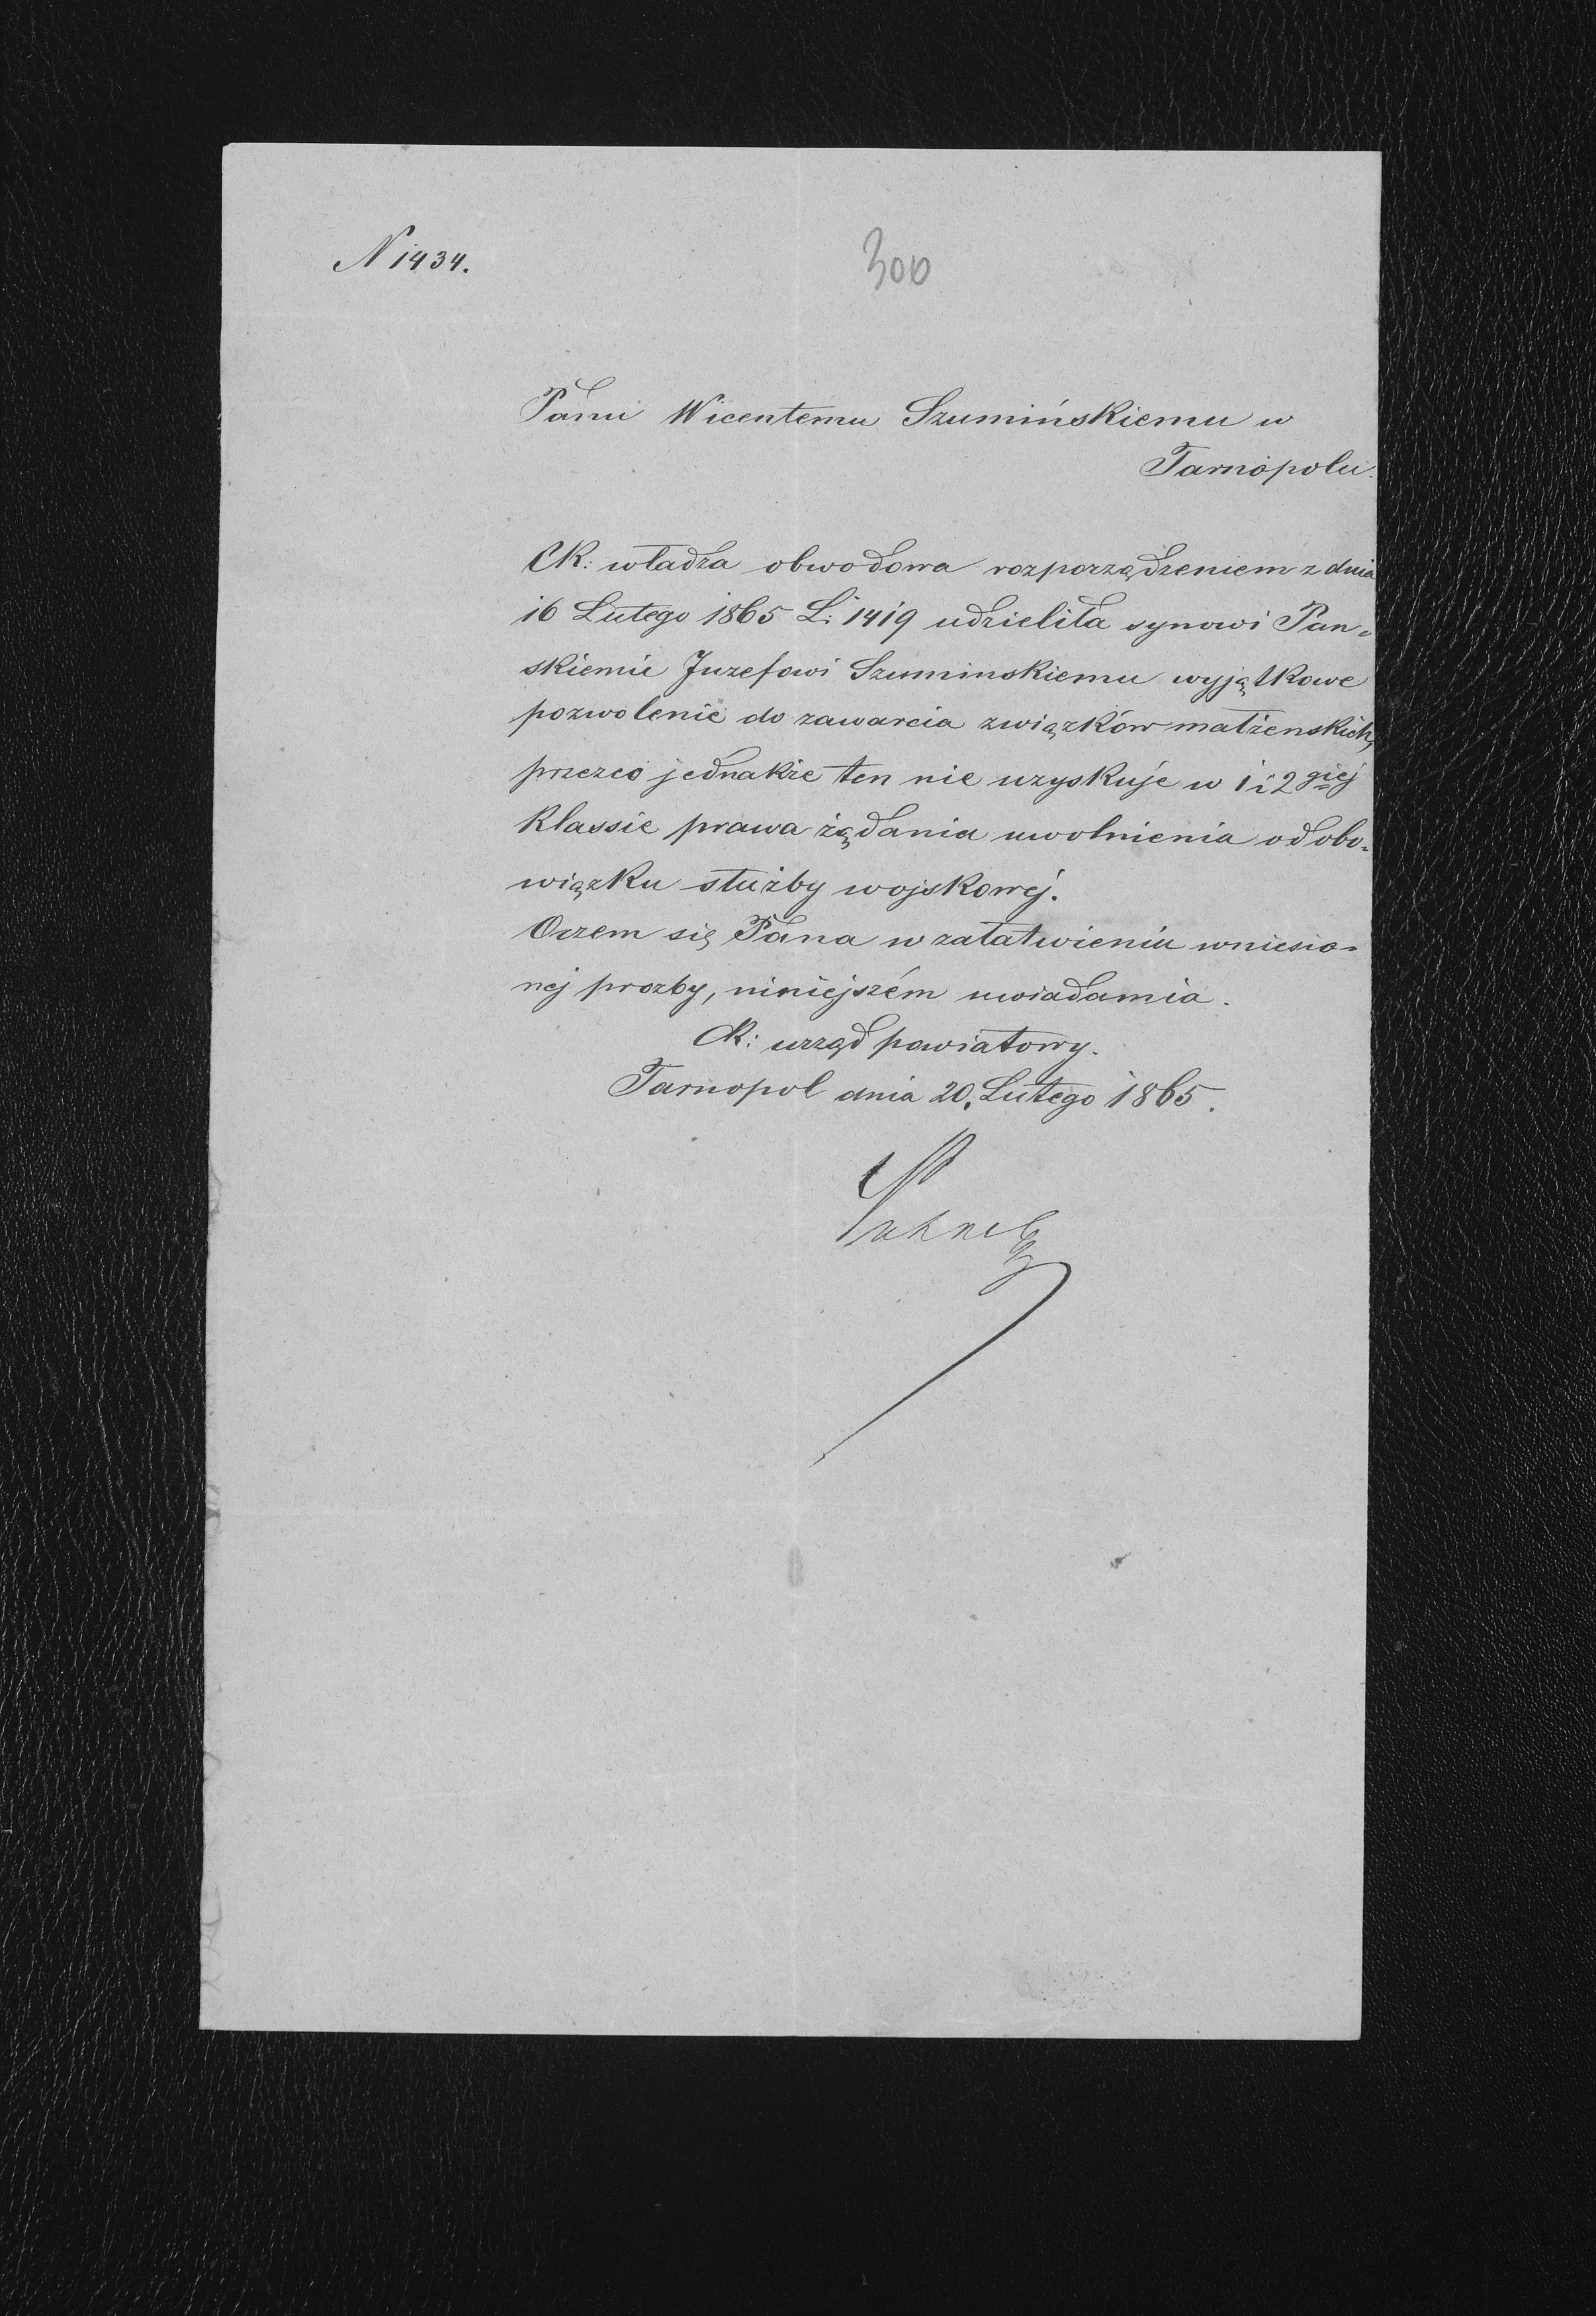 N 1434.
300
Panu Wicentemu Szumińskiemu w
Tarnopolu.
CK: władza obwodowa rozporządzeniem z dnia
16 Lutego 1865 L: 1419 udzieliła synowi Pan-
skiemu Juzefowi Szuminskiemu wyjątkowe
pozwolenie do zawarcia związków małżenskich,
przezco jednakże ten nie uzyskuje w 1 i 2giej
Klassie prawa żądania uwolnienia od obo-
wiązku służby wojskowej.
Oczem się Pana w załatwieniu wniesio-
nej prozby, niniejszém uwiadamia.
CK: urząd powiatowy.
Tarnopol dnia 20. Lutego 1865.